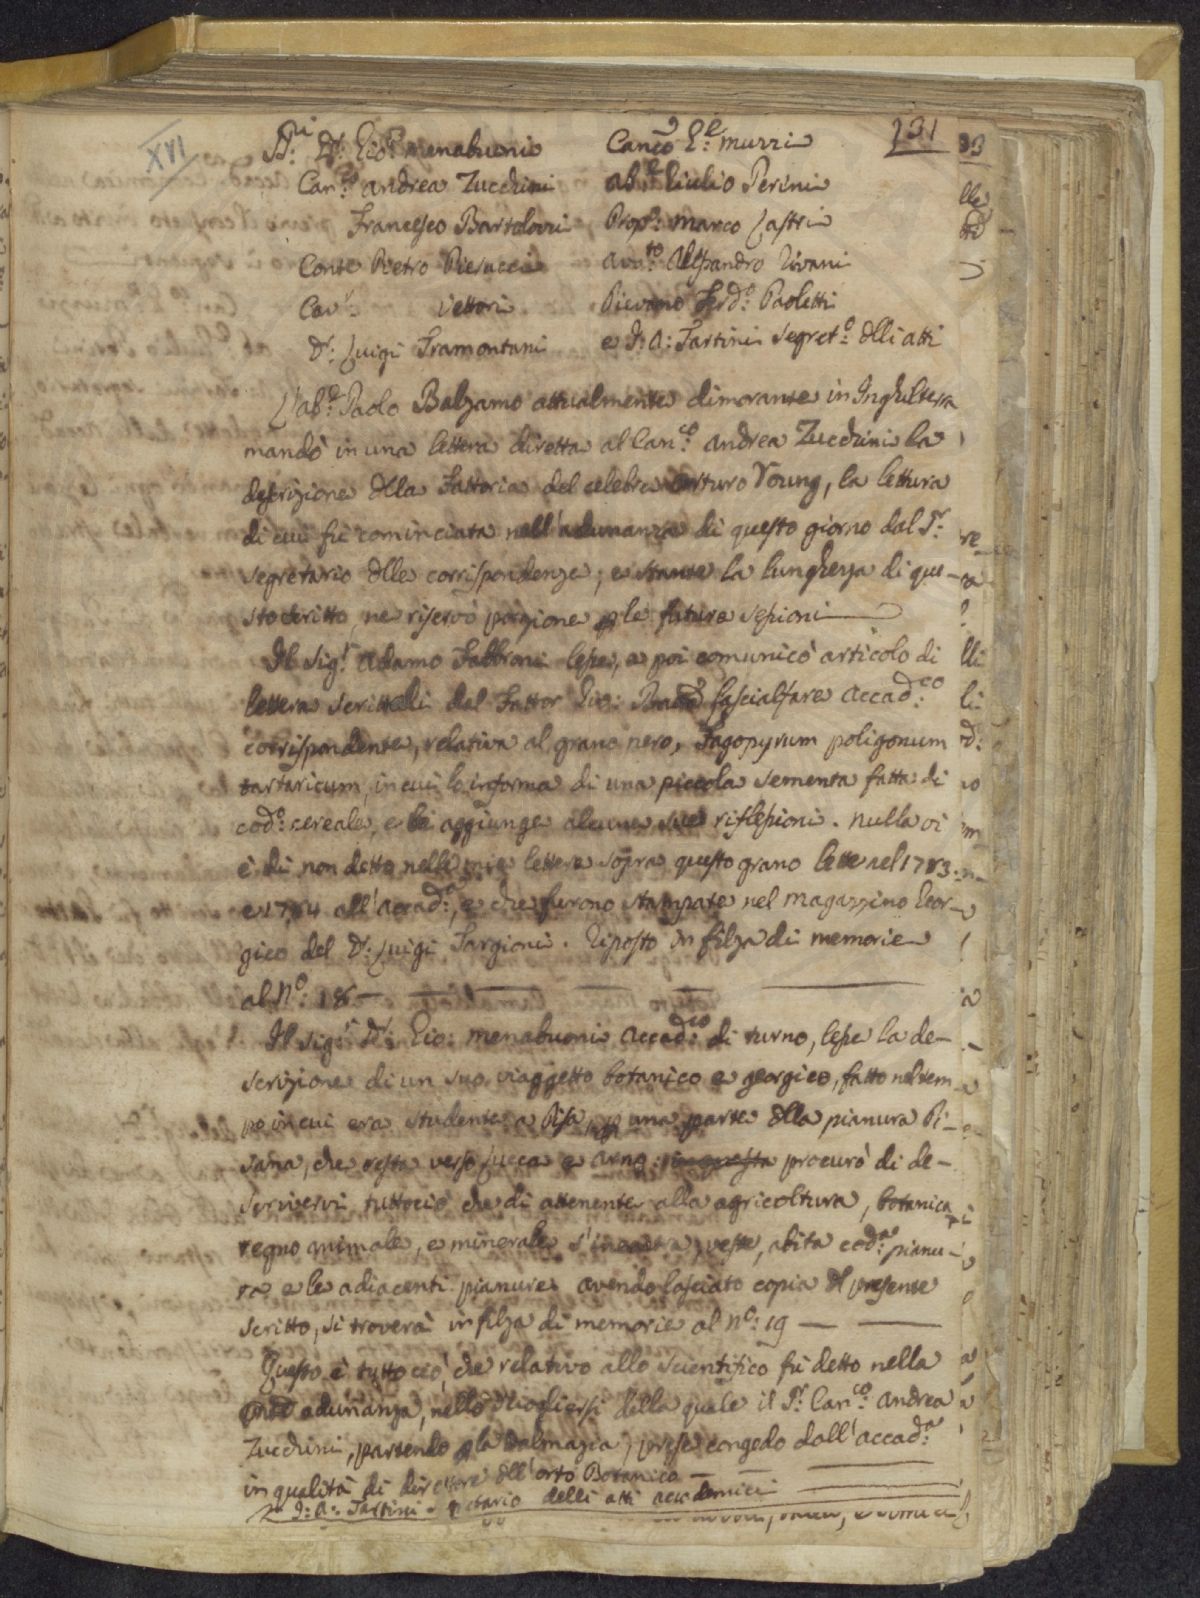 XVI
131
SS.ri D.r Gio: Menabuoni
Can.co Andrea Zucchini
Francesco Bartolozzi
Conte Pietro Pieruccin
Cav.r Vettori
D.r Luigi Tramontani
Canco G.e Muzzi
Ab.e Giulio Perini
Prop.o Marco Lastri
Avv.to Alessandro Rivani
Pievano Ferd.o Paoletti
e I: A: Tartini Segret.o dlli atti
L'ab.e Paolo Balzamo attualmente dimorante in Inghilterra
mandò in una lettera diretta al Can.co Andrea Zucchini la
descrizione dlla Fattoria del celebre Arturo Young, la lettura
di cui fù cominciata nell'adunanza di questo giorno dal S.r
segretario dlle corrispondenze; e stante la lunghezza di que-
sto scritto, ne riservò porzione p le future sessioni
Il Sig.r Adamo Fabbroni lesse, e poi comunicò articolo di
lettera scrittali dal Fattor Gio: Lascialfare Accad.co
corrispondente, relativa al grano nero, Fagopyrum poligonum
tartaricum, in cui lo informa di una piccola sementa fatta di
cod.o cereale, e li aggiunge alcune sue riflessioni. Nulla vi
è di non detto nelle mie lettere sopra questo grano lette nel 1783.
e 1784 all'Accad.a, e che furono stampate nel Magazzino Geor-
gico del D.r Luigi Targioni. Riposto in filza di memorie
al N.o: 18
Il Sig.r D.r Gio: Menabuoni Accad.co di turno, lesse la de-
scrizione di un suo viaggetto botanico e georgico, fatto nel tem-
po in cui era studente a Pisa, p una parte dlla pianura Pi-
sana, che resta verso Lucca e Arno: in questa procurò di de-
scrivervi tuttociò che di attenente alla agricoltura, botanica
regno animale, e minerale s'incontra, veste, abita cod.a pianu-
ra e le adiacenti pianure avendo lasciato copia dl presente
scritto, si troverà in filza di memorie al N.o: 19
Questo è tutto ciò, che relativo allo scientifico fù detto nella
adunanza, nello sciogliersi della quale il S.r Can.co Andrea
Zucchini, partendo p la Dalmazia, prese congedo dall'accad.a
in qualità di direttore dll'orto Botanico
I: A: Tartini Segretario delli atti accademici